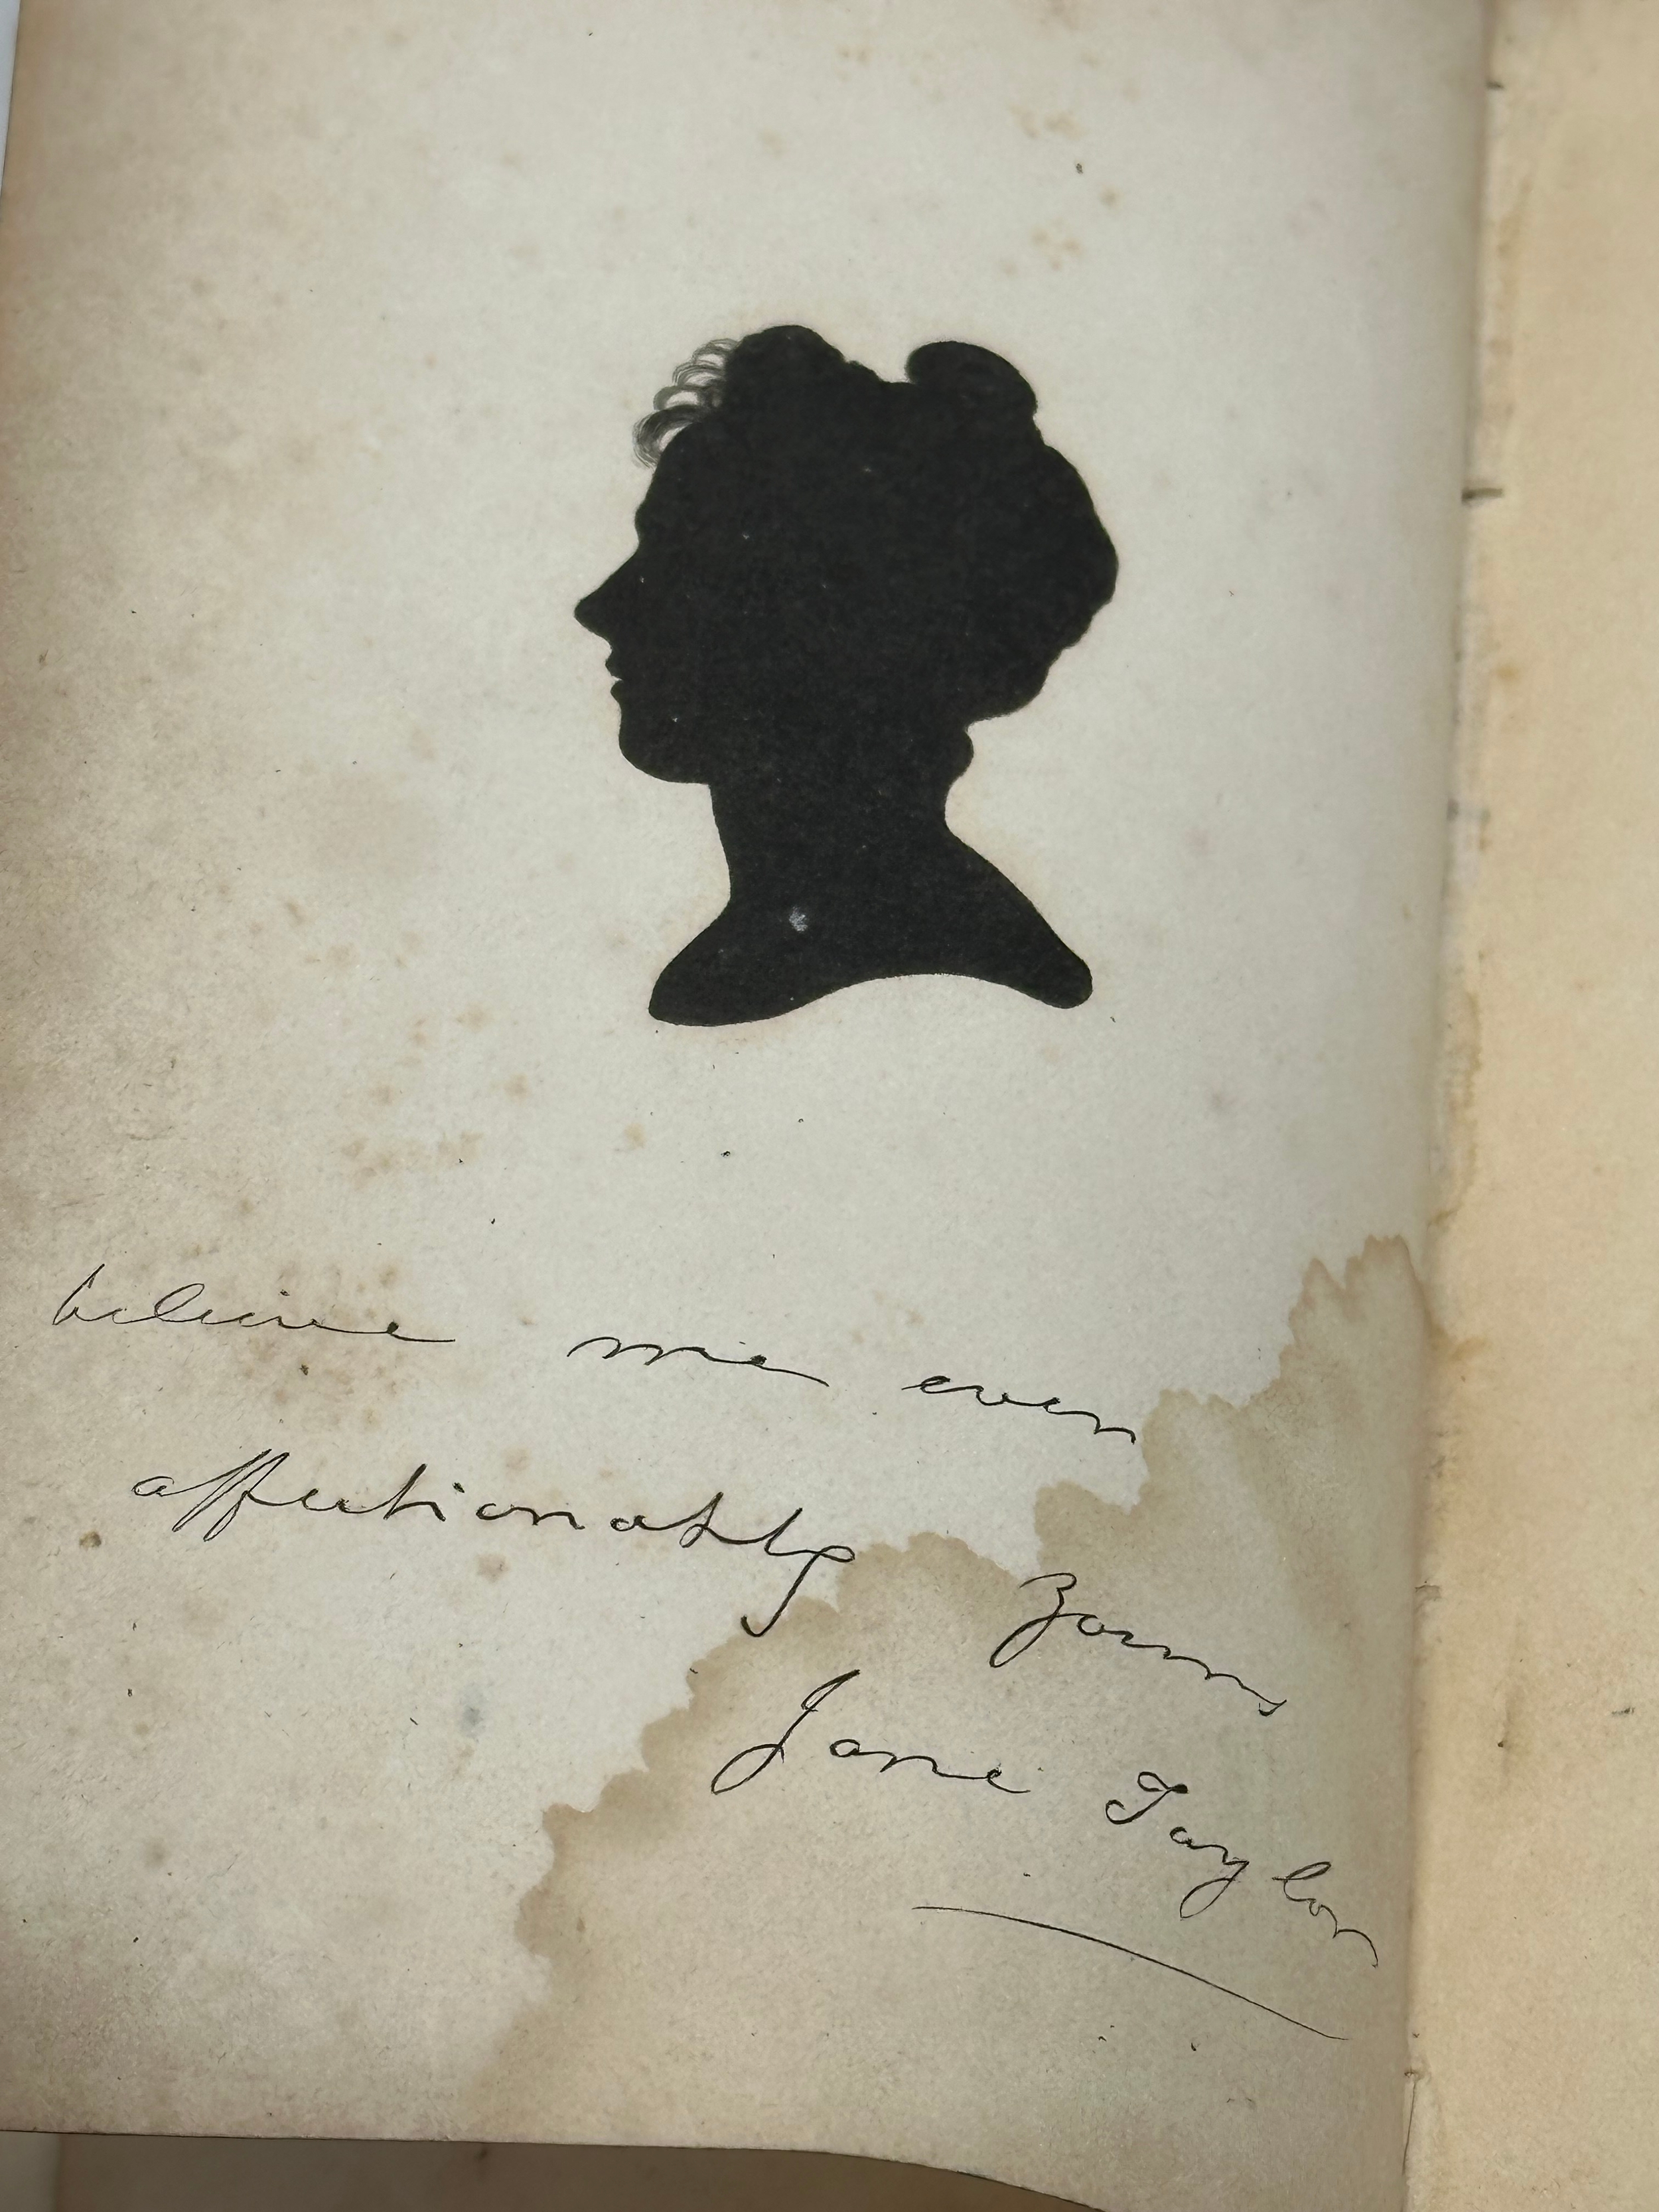 believe me ever
affectionately yours
Jane Taylor